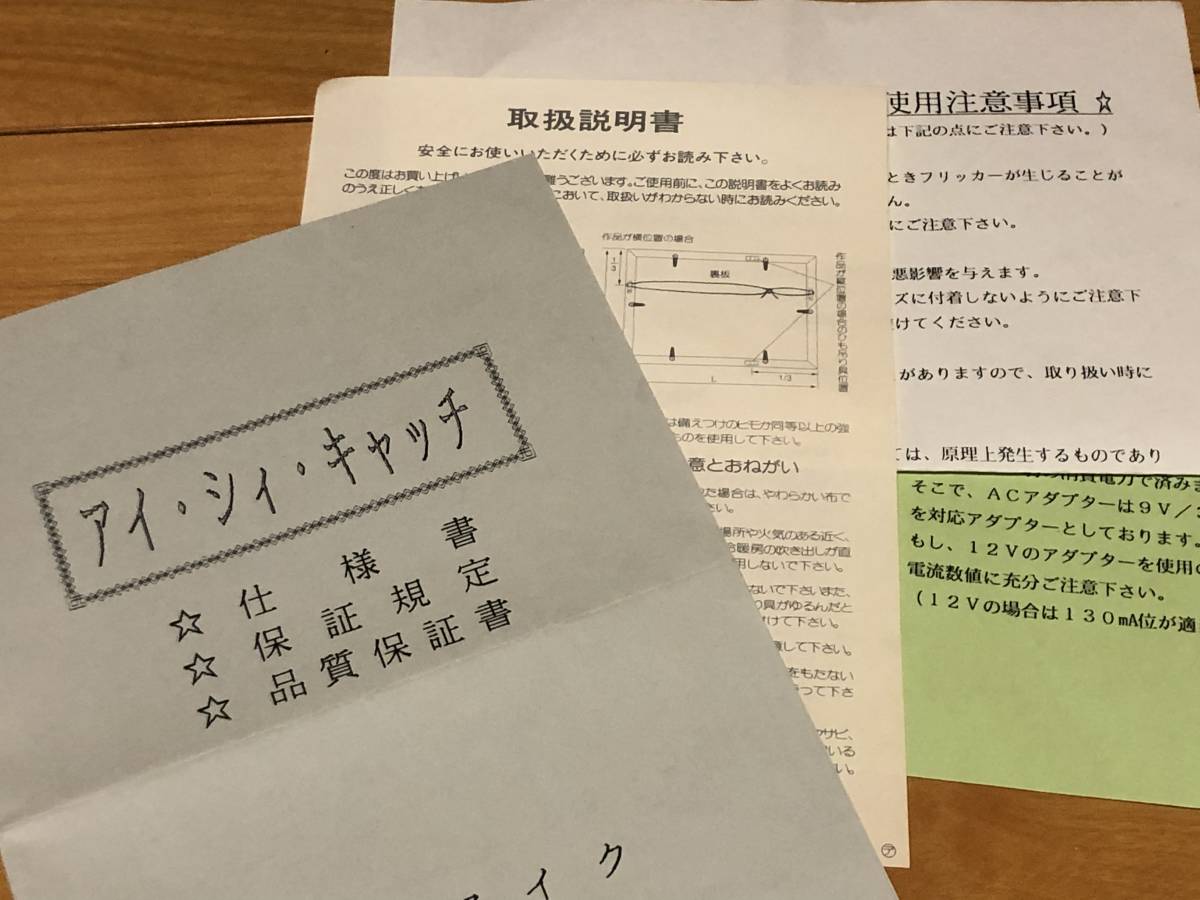 アイ・シィ・キャッチ
☆ 仕様書
☆ 保証規定
☆ 品質保証書
イク
取扱説明書
安全にお使いいただくために必ずお読み下さい。
この度はお買い上げ
難うございます。ご使用前に、この説明書をよくお読み
のうえ正しく
において、取扱いがわからない時にお読みください。
作品が横位置の場合
1/3
裏板
作品が縦位置の場合のひも吊り具位置
L
1/3
は備えつけのヒモか同等以上の強
ものを使用して下さい。
意とおねがい
た場合は、やわらかい布で
さい。
場所や火気のある近く、
冷暖房の吹き出しが直
用しないで下さい。
ないで下さいまた、
り具がゆるんだと
付けて下さい。
して下さい。
をもたない
って下さ
サビ、
いる
い。
ア
使用注意事項 ☆
は下記の点にご注意下さい。）
ときフリッカーが生じることが
ん。
にご注意下さい。
悪影響を与えます。
ズに付着しないようにご注意下
けてください。
がありますので、取り扱い時に
ては、原理上発生するものであり
消費電力で済みま
そこで、ＡＣアダプターは９Ｖ／
を対応アダプターとしております。
もし、１２Ｖのアダプターを使用の
電流数値に充分ご注意下さい。
（１２Ｖの場合は１３０mA位が適